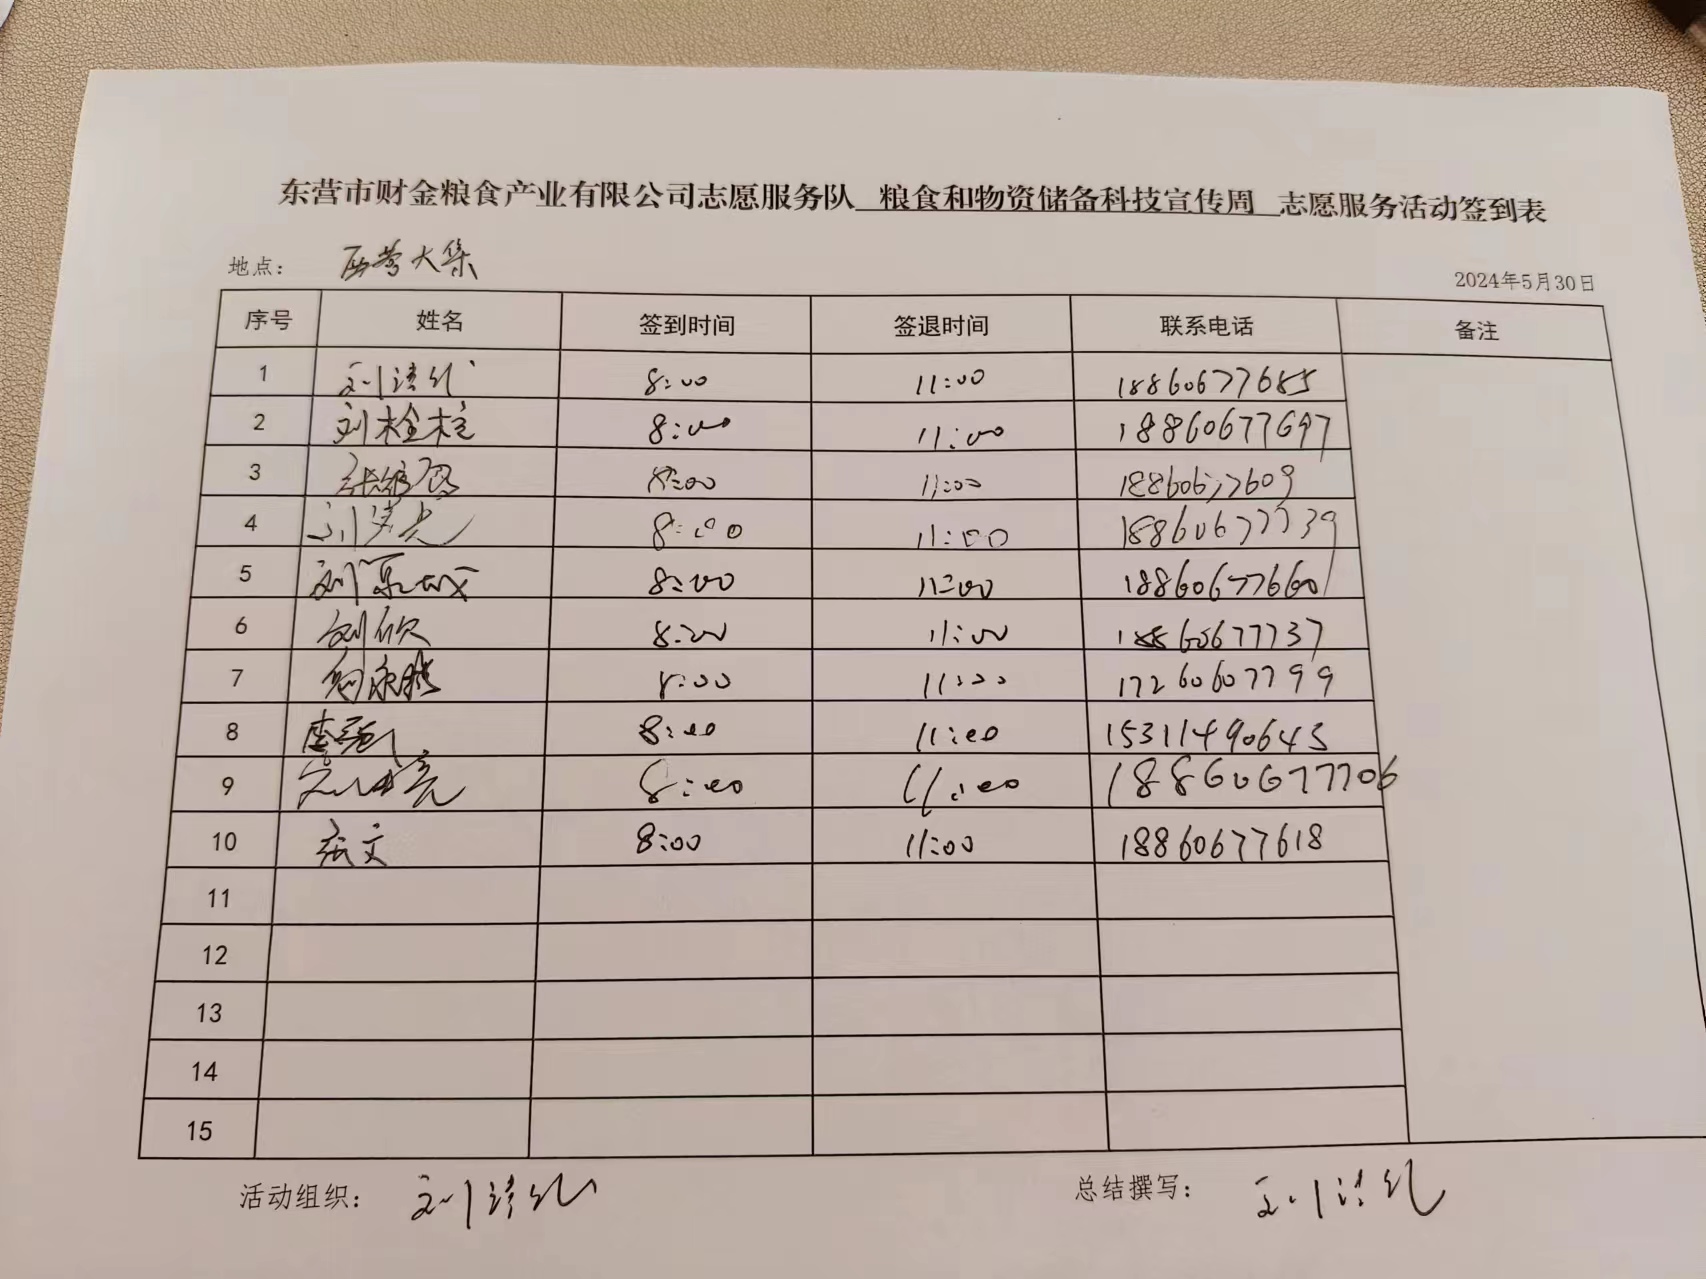 东营市财金粮食产业有限公司志愿服务队 粮食和物资储备科技宣传周 志愿服务活动签到表
地点： 西营大集
2024年5月30日
序号 姓名 签到时间 签退时间 联系电话 备注
1 8:00 11:00 18860677685
2 刘栓柱 8:00 11:00 18860677697
3 8:00 11:00 18860677609
4 8:00 11:00 18860677739
5 8:00 11:00 18860677660
6 刘欣 8:00 11:00 18860677737
7 8:00 11:00 17260607799
8 8:00 11:00 15311490643
9 8:00 11:00 18860677706
10 张文 8:00 11:00 18860677618
11
12
13
14
15
活动组织： 总结撰写：